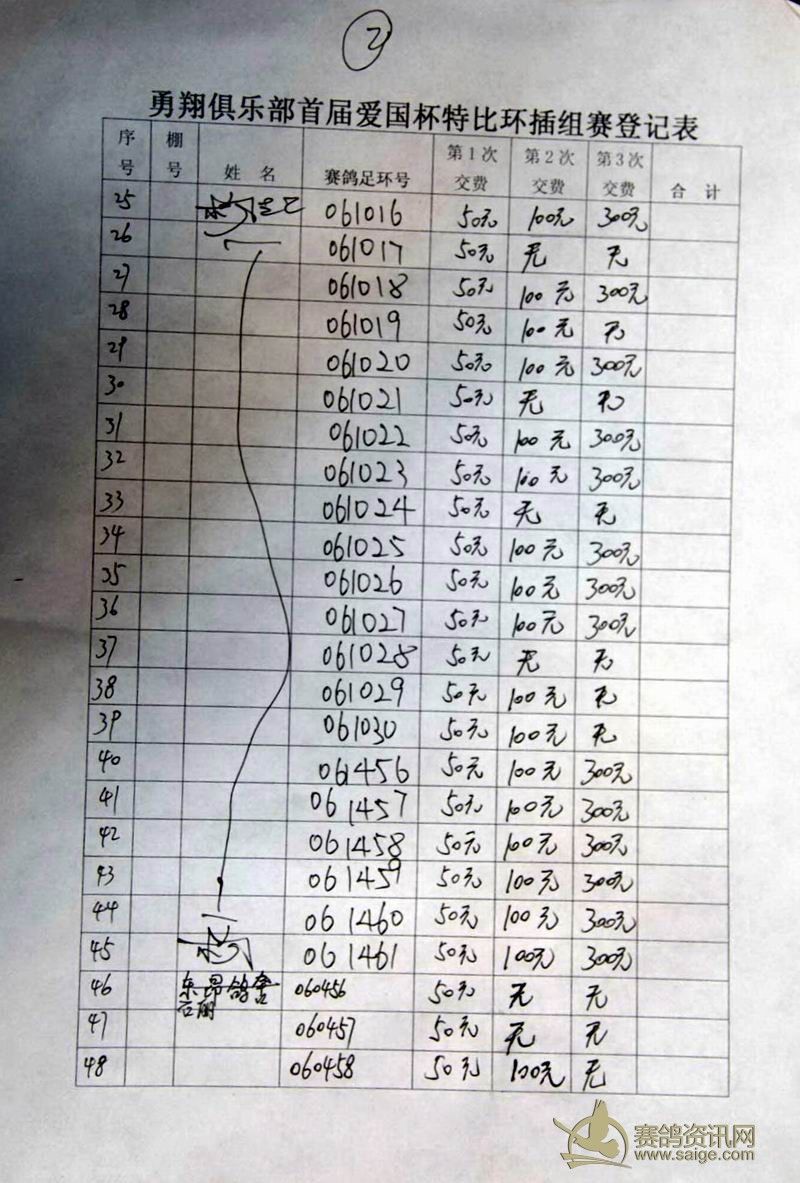 2
勇翔俱乐部首届爱国杯特比环插组赛登记表
序号 棚号 姓 名 赛鸽足环号 第1次交费 第2次交费 第3次交费 合 计
25 061016 50元 100元 300元
26 061017 50元 无 无
27 061018 50元 100元 300元
28 061019 50元 100元 无
29 061020 50元 100元 300元
30 061021 50元 无 无
31 061022 50元 100元 300元
32 061023 50元 100元 300元
33 061024 50元 无 无
34 061025 50元 100元 300元
35 061026 50元 100元 300元
36 061027 50元 100元 300元
37 061028 50元 无 无
38 061029 50元 100元 无
39 061030 50元 100元 无
40 061456 50元 100元 300元
41 061457 50元 100元 300元
42 061458 50元 100元 300元
43 061459 50元 100元 300元
44 061460 50元 100元 300元
45 061461 50元 100元 300元
46 东昂鸽舍 石丽 060456 50元 无 无
47 060457 50元 无 无
48 060458 50元 100元 无
赛鸽资讯网
www.saige.com